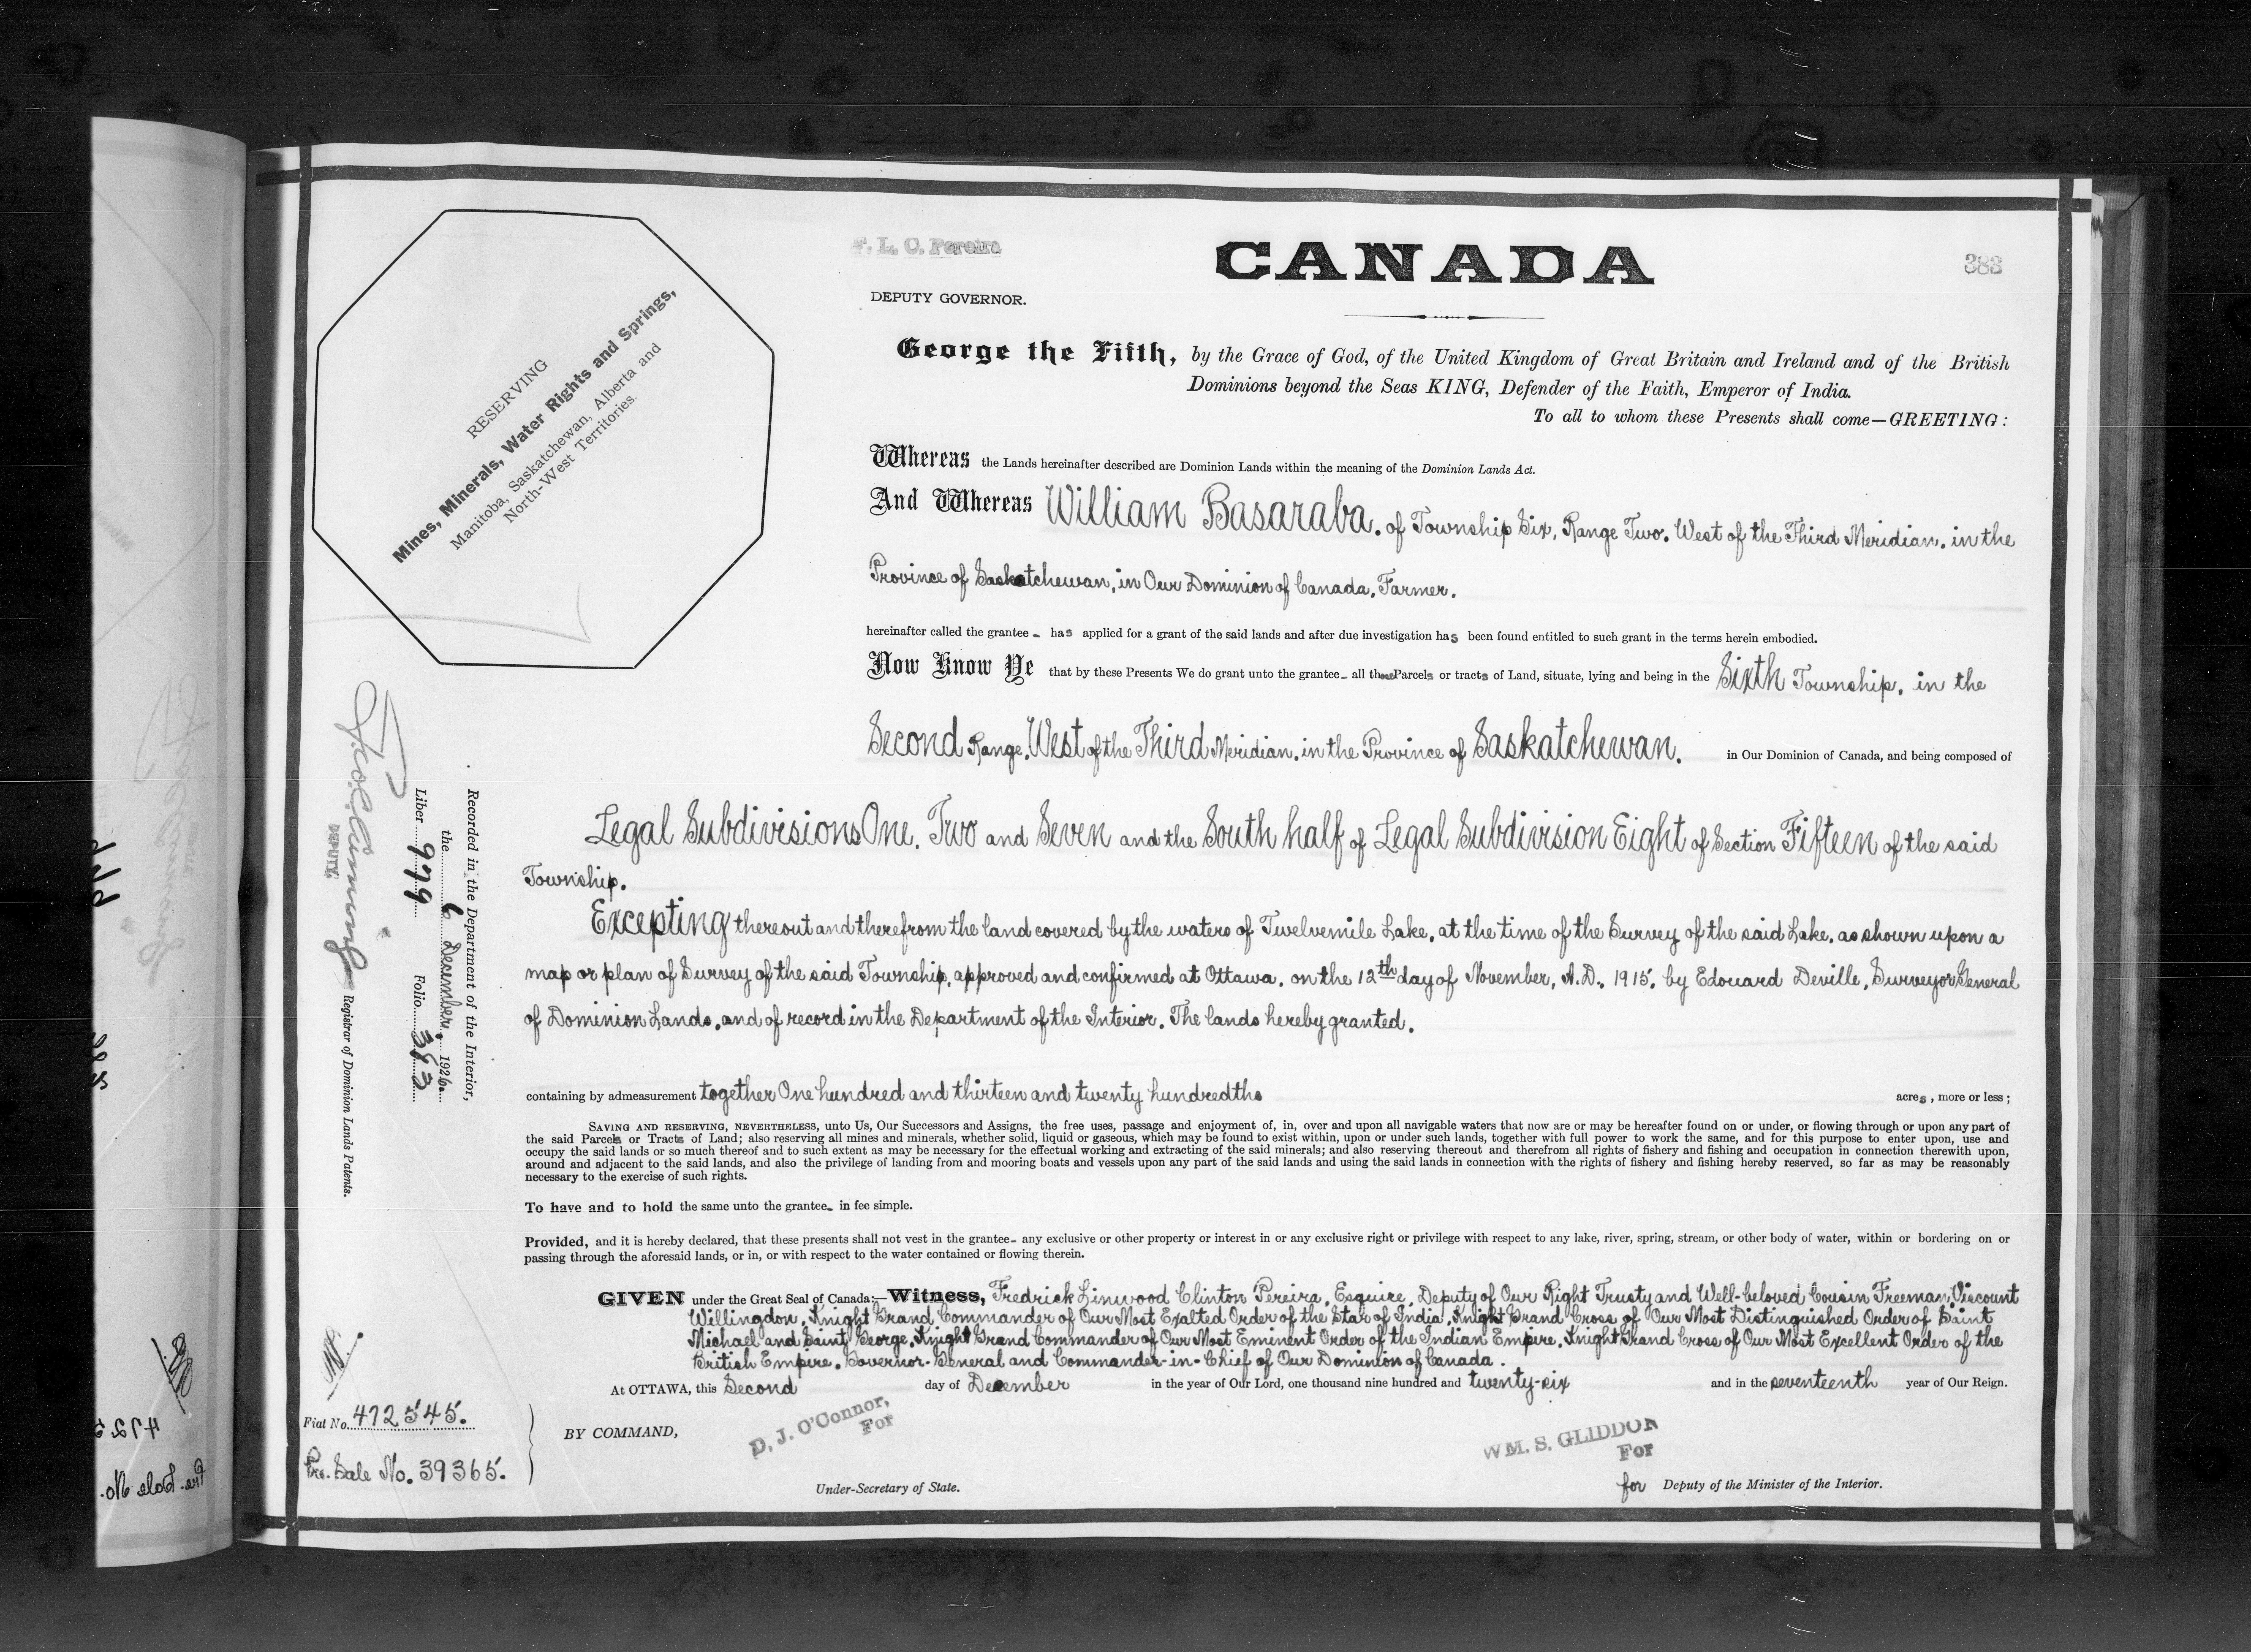 F. L. C. Pereira
CANADA
383
DEPUTY GOVERNOR.
RESERVING
Mines, Minerals, Water Rights and Springs,
Manitoba, Saskatchewan, Alberta and
North-West Territories.
George the Fifth, by the Grace of God, of the United Kingdom of Great Britain and Ireland and of the British
Dominions beyond the Seas KING, Defender of the Faith, Emperor of India.
To all to whom these Presents shall come—GREETING:
Whereas the Lands hereinafter described are Dominion Lands within the meaning of the Dominion Lands Act.
And Whereas William Basaraba, of Township Six, Range Two, West of the Third Meridian, in the
Province of Saskatchewan, in Our Dominion of Canada, Farmer.
hereinafter called the grantee - has applied for a grant of the said lands and after due investigation has been found entitled to such grant in the terms herein embodied.
Now Know Ye that by these Presents We do grant unto the grantee - all those Parcels or tracts of Land, situate, lying and being in the Sixth Township, in the
Second Range, West of the Third Meridian, in the Province of Saskatchewan, in Our Dominion of Canada, and being composed of
Legal Subdivisions One, Two and Seven and the South half of Legal Subdivision Eight of Section Fifteen of the said
Township.
Excepting thereout and therefrom the land covered by the waters of Twelvemile Lake, at the time of the Survey of the said Lake, as shown upon a
map or plan of Survey of the said Township, approved and confirmed at Ottawa, on the 12th day of November, A.D., 1915, by Edouard Deville, Surveyor General
of Dominion Lands, and of record in the Department of the Interior. The lands hereby granted,
containing by admeasurement together One hundred and thirteen and twenty hundredths acres, more or less;
SAVING AND RESERVING, NEVERTHELESS, unto Us, Our Successors and Assigns, the free uses, passage and enjoyment of, in, over and upon all navigable waters that now are or may be hereafter found on or under, or flowing through or upon any part of
the said Parcels or Tracts of Land; also reserving all mines and minerals, whether solid, liquid or gaseous, which may be found to exist within, upon or under such lands, together with full power to work the same, and for this purpose to enter upon, use and
occupy the said lands or so much thereof and to such extent as may be necessary for the effectual working and extracting of the said minerals; and also reserving thereout and therefrom all rights of fishery and fishing and occupation in connection therewith upon,
around and adjacent to the said lands, and also the privilege of landing from and mooring boats and vessels upon any part of the said lands and using the said lands in connection with the rights of fishery and fishing hereby reserved, so far as may be reasonably
necessary to the exercise of such rights.
To have and to hold the same unto the grantee - in fee simple.
Provided, and it is hereby declared, that these presents shall not vest in the grantee - any exclusive or other property or interest in or any exclusive right or privilege with respect to any lake, river, spring, stream, or other body of water, within or bordering on or
passing through the aforesaid lands, or in, or with respect to the water contained or flowing therein.
GIVEN under the Great Seal of Canada:—Witness, Fredrick Linwood Clinton Pereira, Esquire, Deputy of Our Right Trusty and Well-beloved Cousin Freeman, Viscount
Willingdon, Knight Grand Commander of Our Most Exalted Order of the Star of India, Knight Grand Cross of Our Most Distinguished Order of Saint
Michael and Saint George, Knight Grand Commander of Our Most Eminent Order of the Indian Empire, Knight Grand Cross of Our Most Excellent Order of the
British Empire, Governor-General and Commander-in-Chief of Our Dominion of Canada.
At OTTAWA, this Second day of December in the year of Our Lord, one thousand nine hundred and twenty-six and in the seventeenth year of Our Reign.
BY COMMAND,
D. J. O'Connor,
For
Under-Secretary of State.
WM. S. GLIDDON
For
for Deputy of the Minister of the Interior.
Recorded in the Department of the Interior,
the 6 December, 1926.
Liber 979 Folio 383
DEPUTY Registrar of Dominion Lands Patents.
Fiat No. 472545.
Pre. Sale No. 39365.